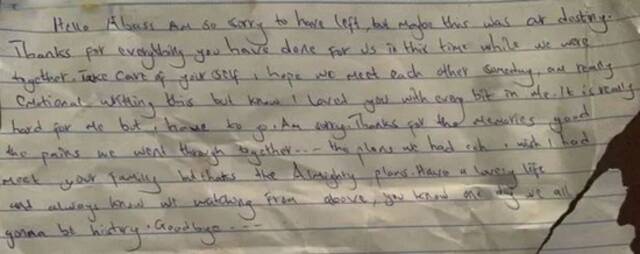 Hello Abass Am so sorry to have left, but maybe this was our destiny.
Thanks for everything you have done for us in this time while we were
together. Take care of your self, i hope we meet each other someday, am really
emotional writting this but know I loved you with every bit in me. It is really
hard for me but i have to go. Am sorry. Thanks for the memories good
the pains we went through together --- the plans we had i wish I had
meet your family but thats the Almighty plans. Have a lovely life
and always know we watching from above, you know one day we all
gonna be history. Goodbye. ---